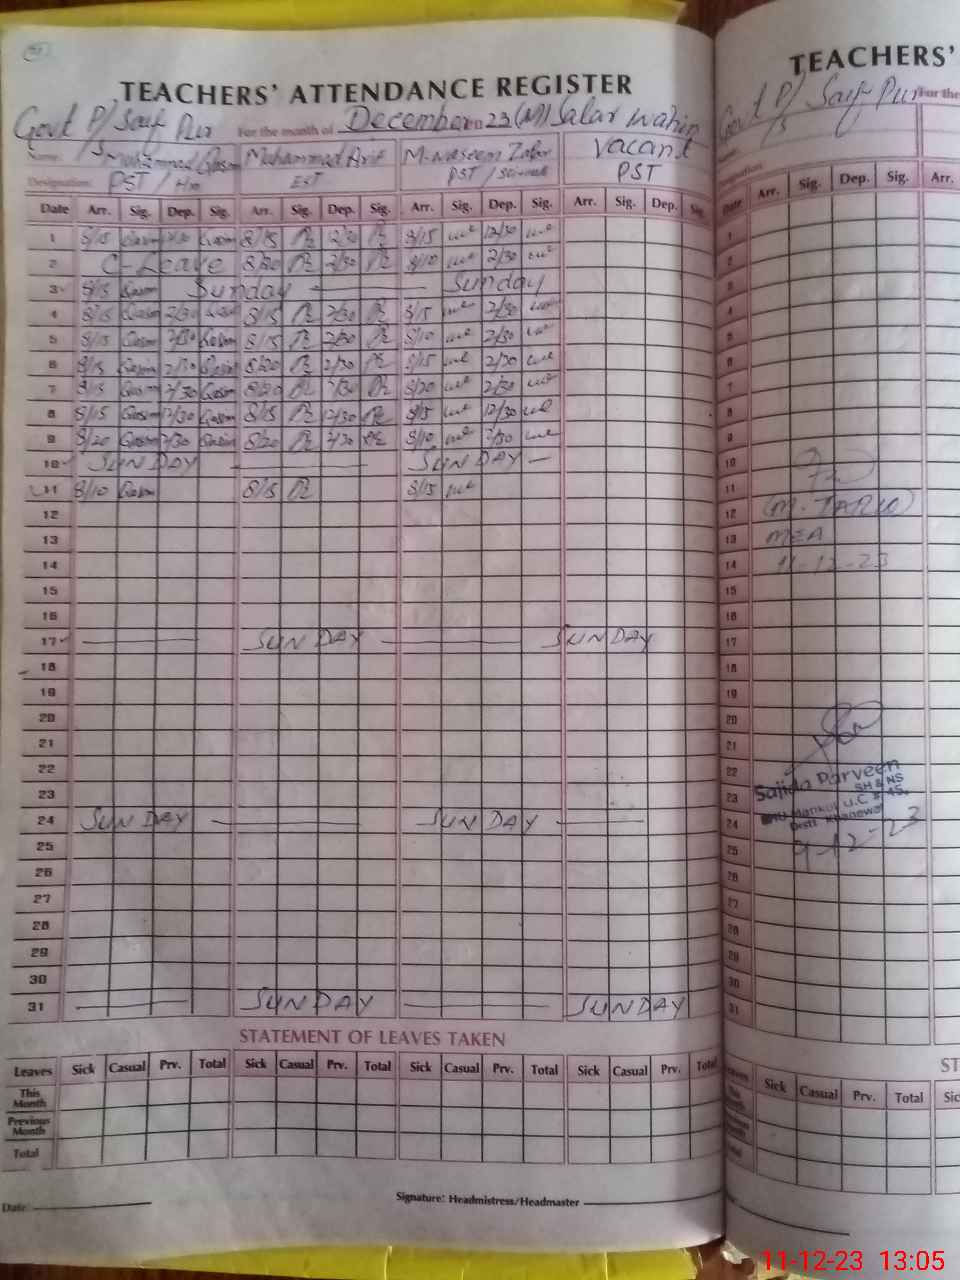 TEACHERS' ATTENDANCE REGISTER
Govt P/S Saif Pur For the month of December 23 (M) Salar wahin
Name: Mohammad Qasim Mohammad Arif M. Waseem Zafar Vacant
Designation: PST / EST PST / PST
Date Arr. Sig. Dep. Sig. Arr. Sig. Dep. Sig. Arr. Sig. Dep. Sig. Arr. Sig. Dep. Sig.
1 8/15 Qasim 12/30 Qasim 8/15 12/30 8/15 12/30
2 C-Leave 8/20 2/30 8/10 2/30
3 8/15 Qasim Sunday Sunday
4 8/15 Qasim 2/30 Qasim 8/15 2/30 8/15 2/30
5 8/15 Qasim 2/30 Qasim 8/15 2/30 8/10 2/30
6 8/15 Qasim 2/30 Qasim 8/20 2/30 8/15 2/30
7 8/15 Qasim 2/30 Qasim 8/20 2/30 8/20 2/30
8 8/15 Qasim 12/30 Qasim 8/15 12/30 8/15 12/30
9 8/20 Qasim 2/30 Qasim 8/20 2/30 8/10 2/30
10 SUNDAY SUNDAY
11 8/10 Qasim 8/15 8/15
12
13
14
15
16
17 SUNDAY SUNDAY
18
19
20
21
22
23
24 SUNDAY SUNDAY
25
26
27
28
29
30
31 SUNDAY SUNDAY
STATEMENT OF LEAVES TAKEN
Leaves Sick Casual Prv. Total Sick Casual Prv. Total Sick Casual Prv. Total Sick Casual Prv. Total
This Month
Previous Month
Total
Date: Signature: Headmistress/Headmaster
TEACHERS'
Govt P/S Saif Pur For the
Name:
Designation:
Date Arr. Sig. Dep. Sig. Arr.
1
2
3
4
5
6
7
8
9
10
11
12 (M. TARIQ)
13 MEA
14 11-12-23
15
16
17
18
19
20
21
22 Sajida Parveen
23 SH & NS
U.C # 45,
24 Distt. Khanewal
25 9-12-23
26
27
28
29
30
31
ST
Leaves Sick Casual Prv. Total Sic
This Month
Previous Month
Total
11-12-23 13:05